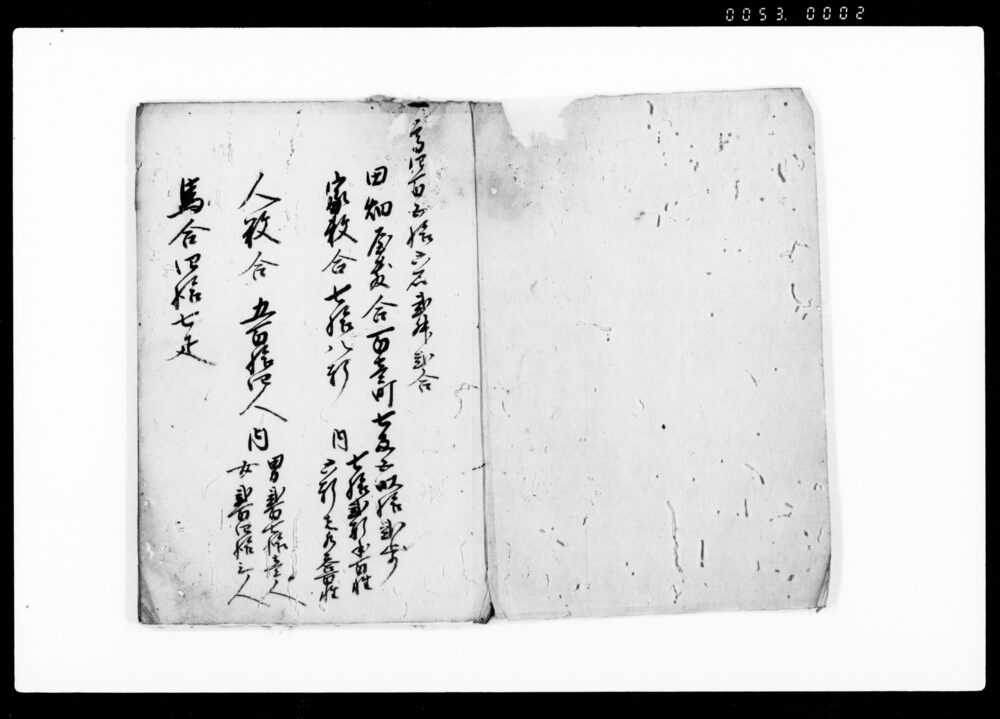 0053. 0002
一高四百五拾六石弐斗弐合
田畑屋敷合百壱町七反五畝拾弐歩
家数合七拾八軒 内
七拾弐軒本百姓
六軒者水呑百姓
人数合五百拾四人 内
男弐百七拾壱人
女弐百四拾三人
馬合四拾七疋